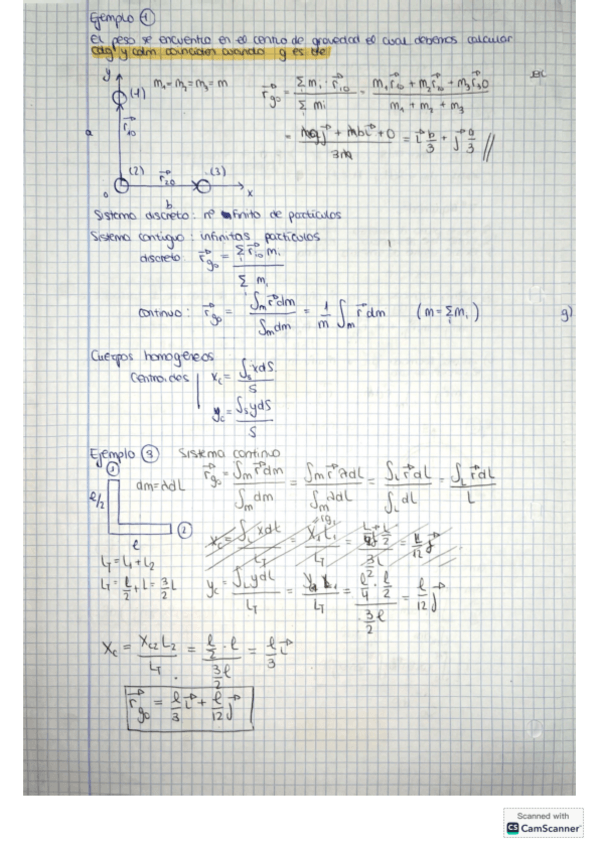 Ejemplo ①
El peso se encuentra en el centro de gravedad el cual debemos calcular
cdg y cdm coinciden cuando g es cte
y
(1)
m₁ = m₂ = m₃ = m
r⃗g₀ = Σ mᵢ · r⃗ᵢ₀ / Σ mᵢ = m₁r⃗₁₀ + m₂r⃗₂₀ + m₃r⃗₃₀ / m₁ + m₂ + m₃
a
r⃗₁₀
= maj⃗ + mbi⃗ + 0 / 3m = i⃗ b/3 + j⃗ a/3 //
(2) r⃗₂₀ (3)
o b x
Sistema discreto: nº finito de partículas
Sistema contiguo: infinitas partículas
discreto: r⃗g₀ = Σ r⃗ᵢ₀ mᵢ / Σ mᵢ
continuo: r⃗g₀ = ∫m r⃗ dm / ∫m dm = 1/m ∫m r⃗ dm (m = Σ mᵢ) g)
Cuerpos homogéneos
Centroides
xc = ∫s xds / S
yc = ∫s yds / S
Ejemplo ③ Sistema continuo
① ② l/2 l
dm = λdL
r⃗g₀ = ∫m r⃗ dm / ∫m dm = ∫m r⃗ λdL / ∫m λdL = ∫L r⃗ dL / ∫L dL = ∫L r⃗ dL / L
LT = L₁ + L₂
LT = l/2 + L = 3/2 L
yc = ∫L ydL / LT = y₁ L₁ / LT = l/4 · l/2 / 3/2 l = l/12 j⃗
Xc = Xc₂ L₂ / LT = l/2 · l / 3l/2 = l/3 i⃗
r⃗g₀ = l/3 i⃗ + l/12 j⃗
Scanned with
CS CamScanner